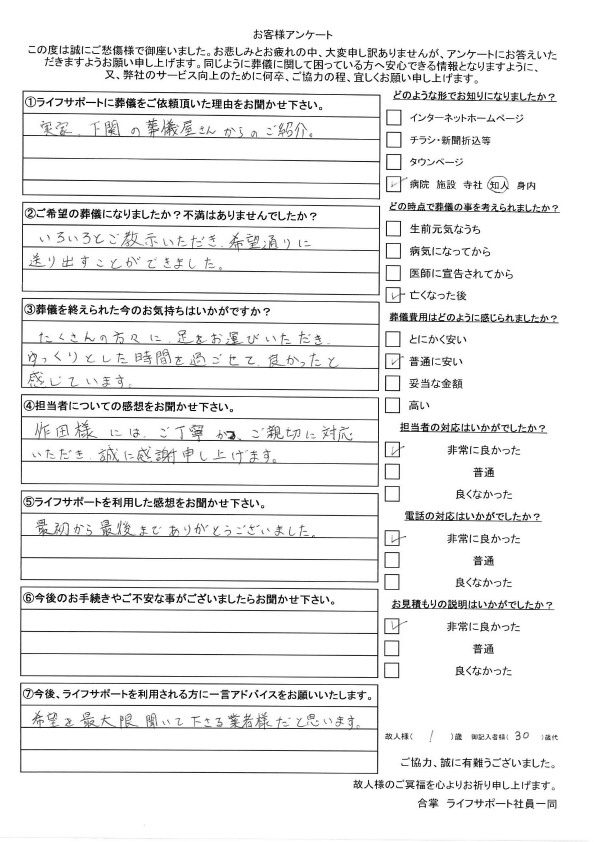 お客様アンケート
この度は誠にご愁傷様で御座いました。お悲しみとお疲れの中、大変申し訳ありませんが、アンケートにお答えいた
だきますようお願い申し上げます。同じように葬儀に関して困っている方へ安心できる情報となりますように、
又、弊社のサービス向上のために何卒、ご協力の程、宜しくお願い申し上げます。
①ライフサポートに葬儀をご依頼頂いた理由をお聞かせ下さい。
実家、下関の葬儀屋さんからのご紹介。
②ご希望の葬儀になりましたか？不満はありませんでしたか？
いろいろとご教示いただき、希望通りに
送り出すことができました。
③葬儀を終えられた今のお気持ちはいかがですか？
たくさんの方々に、足をお運びいただき、
ゆっくりとした時間を過ごせて、良かったと
感じています。
④担当者についての感想をお聞かせ下さい。
作田様には、ご丁寧かつ、ご親切に対応
いただき、誠に感謝申し上げます。
⑤ライフサポートを利用した感想をお聞かせ下さい。
最初から最後までありがとうございました。
⑥今後のお手続きやご不安な事がございましたらお聞かせ下さい。
⑦今後、ライフサポートを利用される方に一言アドバイスをお願いいたします。
希望を最大限聞いて下さる業者様だと思います。
どのような形でお知りになりましたか？
インターネットホームページ
チラシ・新聞折込等
タウンページ
病院 施設 寺社 知人 身内
どの時点で葬儀の事を考えられましたか？
生前元気なうち
病気になってから
医師に宣告されてから
亡くなった後
葬儀費用はどのように感じられましたか？
とにかく安い
普通に安い
妥当な金額
高い
担当者の対応はいかがでしたか？
非常に良かった
普通
良くなかった
電話の対応はいかがでしたか？
非常に良かった
普通
良くなかった
お見積もりの説明はいかがでしたか？
非常に良かった
普通
良くなかった
故人様( 1 )歳 御記入者様( 30 )歳代
ご協力、誠に有難うございました。
故人様のご冥福を心よりお祈り申し上げます。
合掌 ライフサポート社員一同